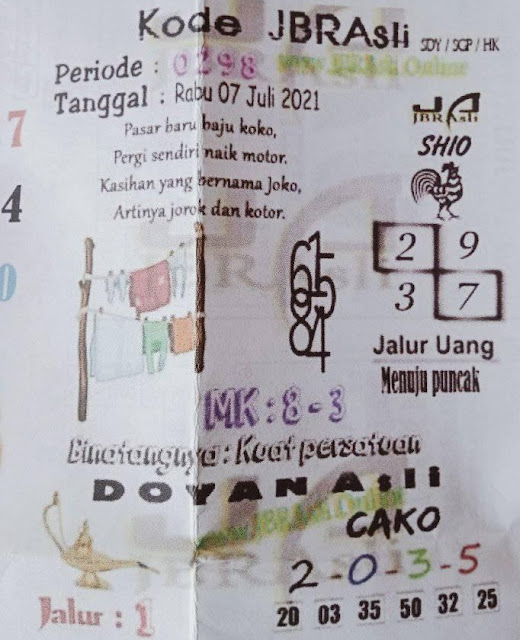 Kode JBRAsli SDY / SGP / HK
Periode : 0298 www.JBRAsli.Online
Tanggal : Rabu 07 Juli 2021
Pasar baru baju koko,
Pergi sendiri naik motor.
Kasihan yang bernama Joko,
Artinya jorok dan kotor.
7
4
0
JA
JBRAsli
SHIO
2 9
3 7
Jalur Uang
Menuju puncak
MK : 8 - 3
Binatangnya : Keat persatuan
DOYAN Asli
www.JBRAsli.Online
CAKO
2-0-3-5
20 03 35 50 32 25
Jalur : 1